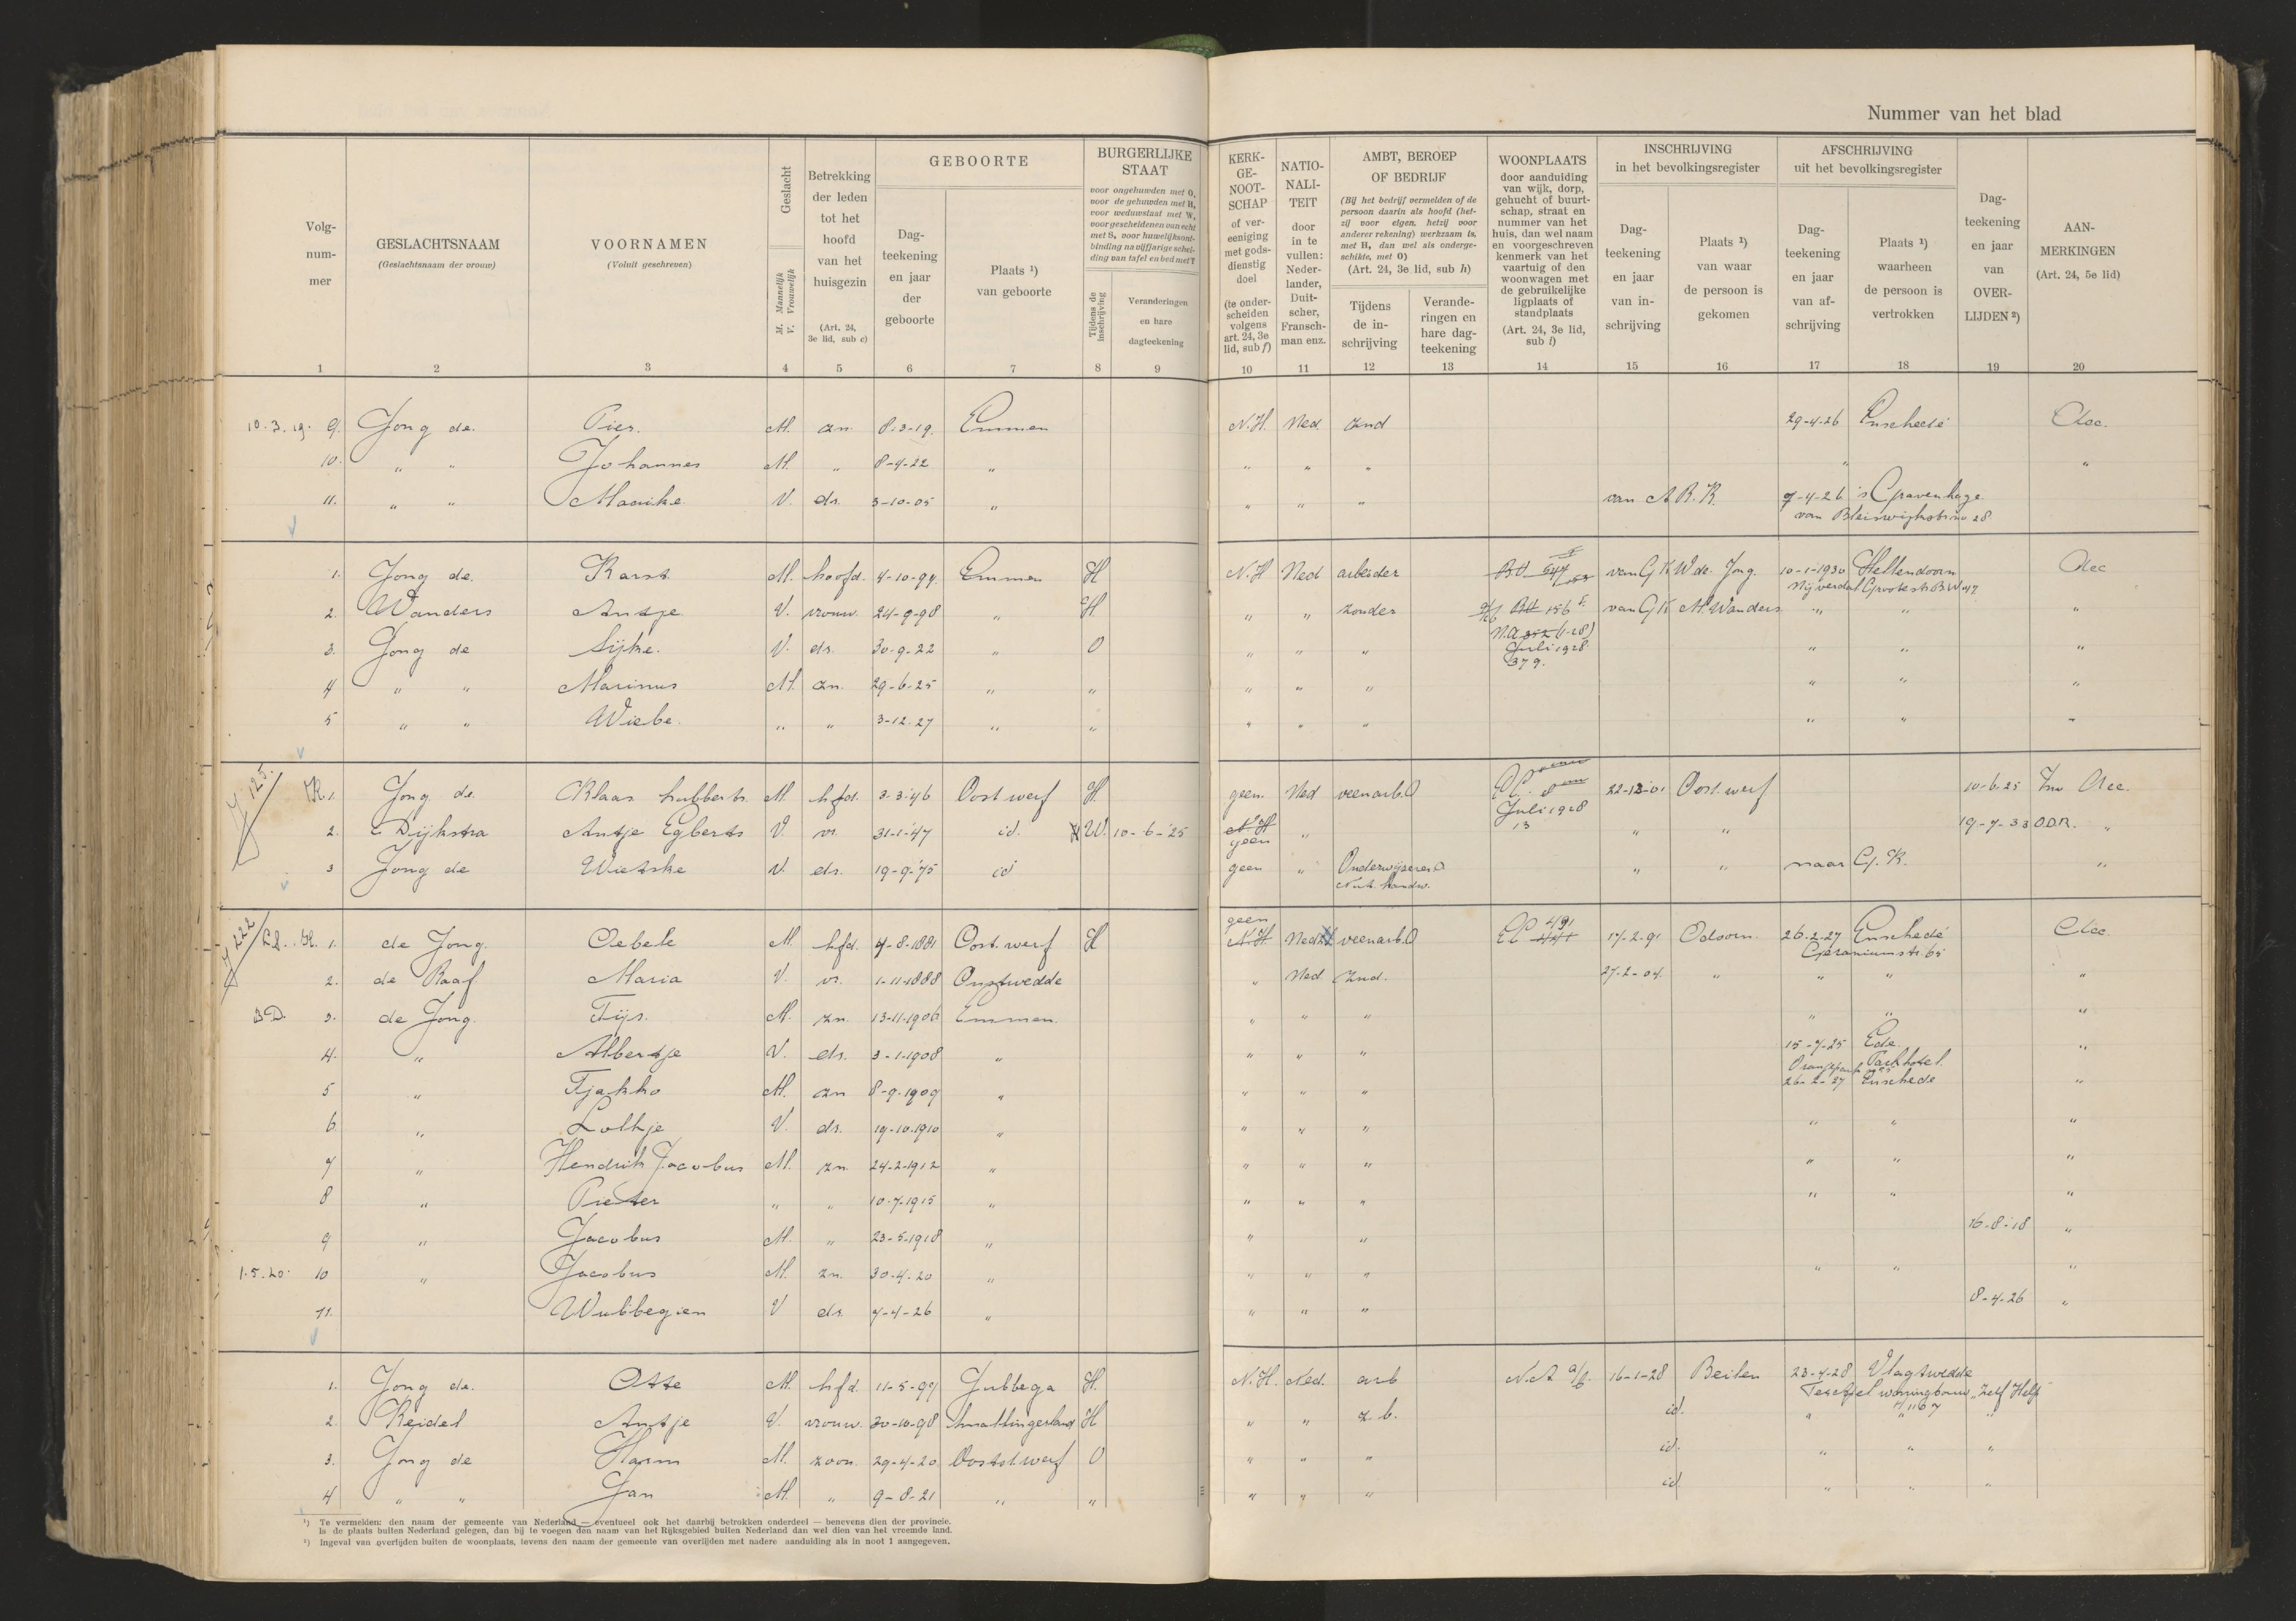 Nummer van het blad
Volg-
num-
mer
GESLACHTSNAAM
(Geslachtsnaam der vrouw)
VOORNAMEN
(Voluit geschreven)
Geslacht
M. Mannelijk
V. Vrouwelijk
Betrekking
der leden
tot het
hoofd
van het
huisgezin
(Art. 24,
3e lid, sub c)
GEBOORTE
Dag-
teekening
en jaar
der
geboorte
Plaats ¹)
van geboorte
BURGERLIJKE
STAAT
voor ongehuwden met O,
voor de gehuwden met H,
voor weduwstaat met W,
voor gescheidenen van echt
met S, voor huwelijksont-
binding na vijfjarige schei-
ding van tafel en bed met T
Tijdens de
inschrijving
Veranderingen
en hare
dagteekening
KERK-
GE-
NOOT-
SCHAP
of ver-
eeniging
met gods-
dienstig
doel
(te onder-
scheiden
volgens
art. 24, 3e
lid, sub f)
NATIO-
NALI-
TEIT
door
in te
vullen:
Neder-
lander,
Duit-
scher,
Fransch-
man enz.
AMBT, BEROEP
OF BEDRIJF
(Bij het bedrijf vermelden of de
persoon daarin als hoofd (het-
zij voor eigen, hetzij voor
anderer rekening) werkzaam is,
met H, dan wel als onderge-
schikte, met O)
(Art. 24, 3e lid, sub h)
Tijdens
de in-
schrijving
Verande-
ringen en
hare dag-
teekening
WOONPLAATS
door aanduiding
van wijk, dorp,
gehucht of buurt-
schap, straat en
nummer van het
huis, dan wel naam
en voorgeschreven
kenmerk van het
vaartuig of den
woonwagen met
de gebruikelijke
ligplaats of
standplaats
(Art. 24, 3e lid,
sub i)
INSCHRIJVING
in het bevolkingsregister
Dag-
teekening
en jaar
van in-
schrijving
Plaats ¹)
van waar
de persoon is
gekomen
AFSCHRIJVING
uit het bevolkingsregister
Dag-
teekening
en jaar
van af-
schrijving
Plaats ¹)
waarheen
de persoon is
vertrokken
Dag-
teekening
en jaar
van
OVER-
LIJDEN ²)
AAN-
MERKINGEN
(Art. 24, 5e lid)
1 2 3 4 5 6 7 8 9 10 11 12 13 14 15 16 17 18 19 20
10.3.19. 9. Jong de. Pier. M. zn. 8-3-19. Emmen N.H. Ned. znd 29-4-26 Enschedé Acc.
10. " " Johannes M. " 8-4-22 " " " " " "
11. " " Maaike V. dr. 3-10-05 " " " " van A.R.K. 7-4-26 's Gravenhage
van Bleiswijkstr. 28
1. Jong de. Karst. M. hoofd. 4-10-94. Emmen H N.H Ned arbeider van G K W de Jong. 10-1-1930 Hellendoorn Acc
2. Wanders Antje V. vrouw. 24-9-98 " H. " " zonder 156 van G K M Wanders " " "
3. Jong de Sijke. V. dr. 30-9-22 " O " " " Juli 1928 " " "
379.
4 " " Marinus M. zn. 29-6-25 " " " " " " " "
5 " " Wiebe. " " 3-12-27 " " " " " " " "
J 125.
K. 1. Jong de. Klaas Lubberts M. hfd. 3-3-'46 Oost.werf H. geen. Ned veenarb. O 22-12-01 Oost.werf 10-6-25 Acc.
Juli 1928
13
2. Dijkstra Antje Egberts V. vr. 31-1-'47 id. W. 10-6-'25 N.H " " " 19-7-33 O.D.R. "
geen
3 Jong de Wietske V. dr. 19-9-'75 id geen " Onderwijzeres O " " naar G.K. "
Nut. handw.
J 222
1. de Jong. Oebele M. hfd. 4-8-1881 Oost.werf H geen N.H. Ned veenarb. O 491 17-2-91 Odoorn. 26-2-27 Enschedé Acc.
Geraniumstr. 65
2. de Raaf Maria V. vr. 1-11-1888 Onstwedde " Ned znd. 27-2-04. " " " "
3D. 3. de Jong. Tijs. M. zn. 13-11-1906 Emmen. " " " " " "
4. " Albertje V. dr. 3-1-1908 " " " " 15-7-25 Ede. "
Oranjepark Parkhotel.
5 " Tjakko M. zn 8-9-1909 " " " " 26-2-27 Enschede "
6 " Loltje V. dr. 19-10-1910 " " " " " " "
7 " Hendrik Jacobus M. zn. 24-2-1912 " " " " " " "
8 " Pieter " " 10-7-1915 " " " " " " "
9 " Jacobus M. " 23-5-1918 " " " 16-8-18 "
1.5.20. 10 " Jacobus M. zn. 30-4-20 " " " " " " "
11. Wubbegien V dr. 7-4-26 " " " " 8-4-26 "
1. Jong de. Otte M. hfd. 11-5-97 Jubbega H. N.H. Ned. arb N.A 16-1-28 Beilen 23-4-28 Vlagtwedde
woningbouw "Zelf Help"
2 Keidel Antje V. vrouw. 30-10-98 Smallingerland H " " z.b. id. " " 67 "
3. Jong de Harm M. zoon. 29-4-20 Oostst.werf O " " " id. " " "
4 " " Jan M. " 9-8-21 " " " " " id " " "
¹) Te vermelden: den naam der gemeente van Nederland — eventueel ook het daarbij betrokken onderdeel — benevens dien der provincie.
Is de plaats buiten Nederland gelegen, dan bij te voegen den naam van het Rijksgebied buiten Nederland dan wel dien van het vreemde land.
²) Ingeval van overlijden buiten de woonplaats, tevens den naam der gemeente van overlijden met nadere aanduiding als in noot 1 aangegeven.